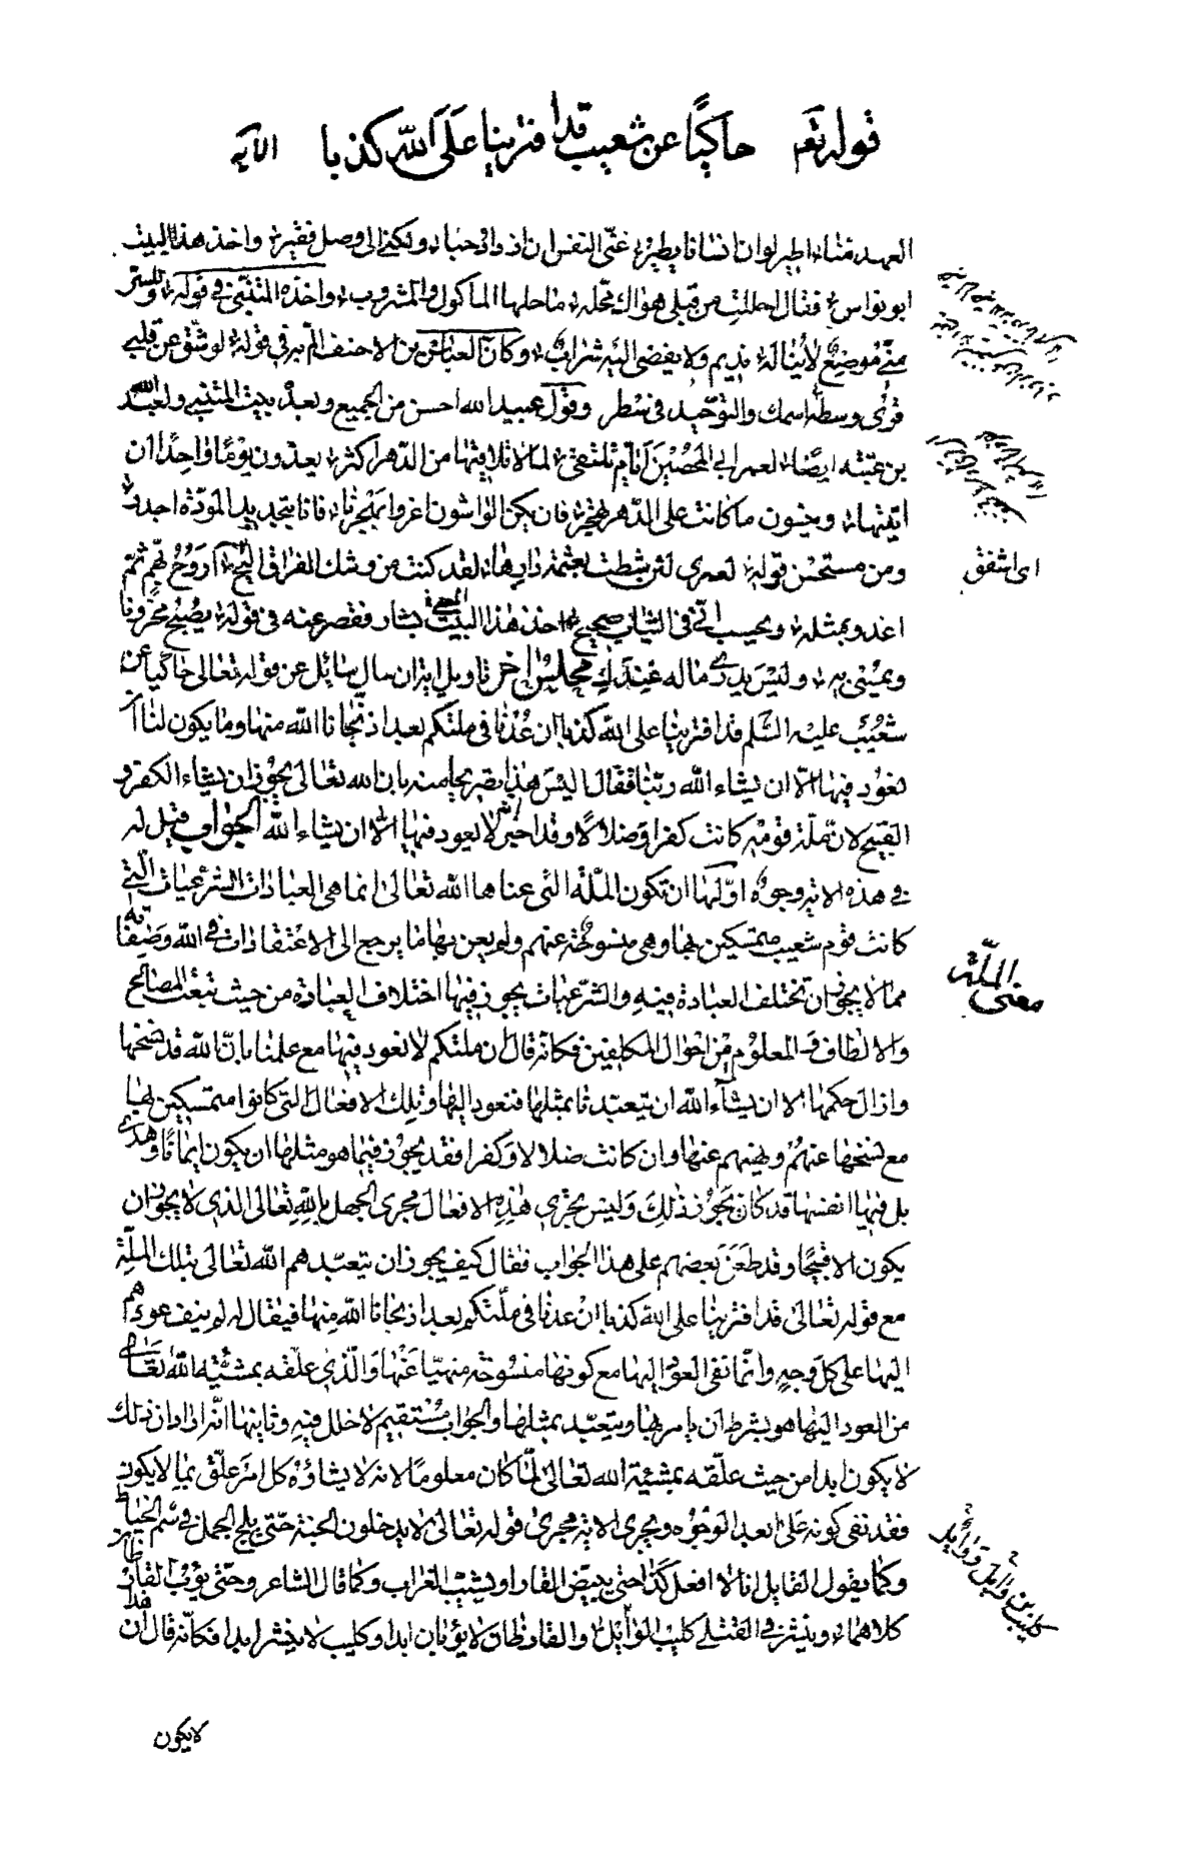 قوله تعم حاكيًا عن شعيب قد افترينا على الله كذبا الآية
العهد منناء اطير لو ان انسانا يطير غنى النفس ان اذ واد حباء ولكن الى وصل فقير واخذ هذا البيت
ابو نواس فقال احللت من قلبى هواك محلة ما حلها المأكول والمشروب واخذه المتنبى فى قوله وللستر
منى موضع لا يناله نديم ولا يفضى اليه شراب وكان العباس بن الاحنف المّ به فى قوله لو شق عن قلبى
قرى وسطه اسمك والتوحيد فى سطر وقول عبيد الله احسن من الجميع وبعده بيت المتنبى ولعبيد الله
بن عتبة ايضا لعمر ابى المحصين ايام نلتقى لما لا نلاقيها من الدهر اكثر يعدون يوما واحدا ان
اتيتها وينسون ما كانت على الدهر تهجر فان يكن الواشون اغروا بهجرنا فانا بتجديد المودة اجدر
ومن مستحسن قوله لعمرى لئن شطت بعثمة دارها لقد كنت من وشك الفراق اليح اروح بهم ثم
اغدو بمثله ويحسب انى فى الثياب صحيح اخذ هذا البيت بشار فقصر عنه فى قوله يصبح محزونا
ويمسى به وليس يدرى ما له عندك مجلس اخر تاويل اية ان سال سائل عن قوله تعالى حاكيا عن
شعيب عليه السلم قد افترينا على الله كذبا ان عدنا فى ملتكم بعد اذ نجانا الله منها وما يكون لنا ان
نعود فيها الا ان يشاء الله ربنا فقال اليس هذا تصريحا منه بان الله تعالى يجوز ان يشاء الكفر و
القبيح لان ملة قومه كانت كفرا وضلالا وقد اخبر انه لا يعود فيها الا ان يشاء الله الجواب قيل له
فى هذه الاية وجوه اولها ان تكون الملة التى عناها الله تعالى انما هى العبادات الشرعيات التى
كانت قوم شعيب متمسكين بها وهى منسوخة عنهم ولم يعن بها ما يرجع الى الاعتقادات فى الله وصفاته
مما لا يجوز ان تختلف العبادة فيه والشرعيات يجوز فيها اختلاف العبادة من حيث تبعت المصالح
والالطاف والمعلوم من احوال المكلفين فكانه قال ان ملتكم لا نعود فيها مع علمنا بان الله قد نسخها
وازال حكمها الا ان يشاء الله ان يتعبدنا بمثلها فنعود اليها وتلك الافعال التى كانوا متمسكين بها
مع نسخها عنهم ونهيهم عنها وان كانت ضلالا وكفرا فقد يجوز فيما هو مثلها ان يكون ايمانا وهدى
بل فيها انفسها قد كان يجوز ذلك وليس تجرى هذه الافعال مجرى الجهل بالله تعالى الذى لا يجوز ان
يكون الا قبيحا وقد طعن بعضهم على هذا الجواب فقال كيف يجوز ان يتعبدهم الله تعالى بتلك الملة
مع قوله تعالى قد افترينا على الله كذبا ان عدنا فى ملتكم بعد اذ نجانا الله منها فيقال له لم ينف عودهم
اليها على كل وجه وانما نفى العود اليها مع كونها منسوخة منهيا عنها والذى علقه بمشيئة الله تعالى
من العود اليها هو بشرط ان يامر بها ويتعبد بمثلها والجواب مستقيم لا خلل فيه وثانيها انه اراد ان ذلك
لا يكون ابدا من حيث علقه بمشيئة الله تعالى لما كان معلوما لانه لا يشاؤه كل امر علق بما لا يكون
فقد نفى كونه على ابعد الوجوه ويجرى الاية مجرى قوله تعالى لا يدخلون الجنة حتى يلج الجمل فى سم الخياط
وكما يقول القايل انا لا افعل كذا حتى يبيض القار او يشيب الغراب وكما قال الشاعر وحتى يؤب القارظان
كلاهما وينشر فى القتلى كليب لوائل والقارظان لا يؤبان ابدا وكليب لا ينشر ابدا فكانه قال ان هذا
لا يكون
اى اشفق
معنى الملّة
كليب بن وائل